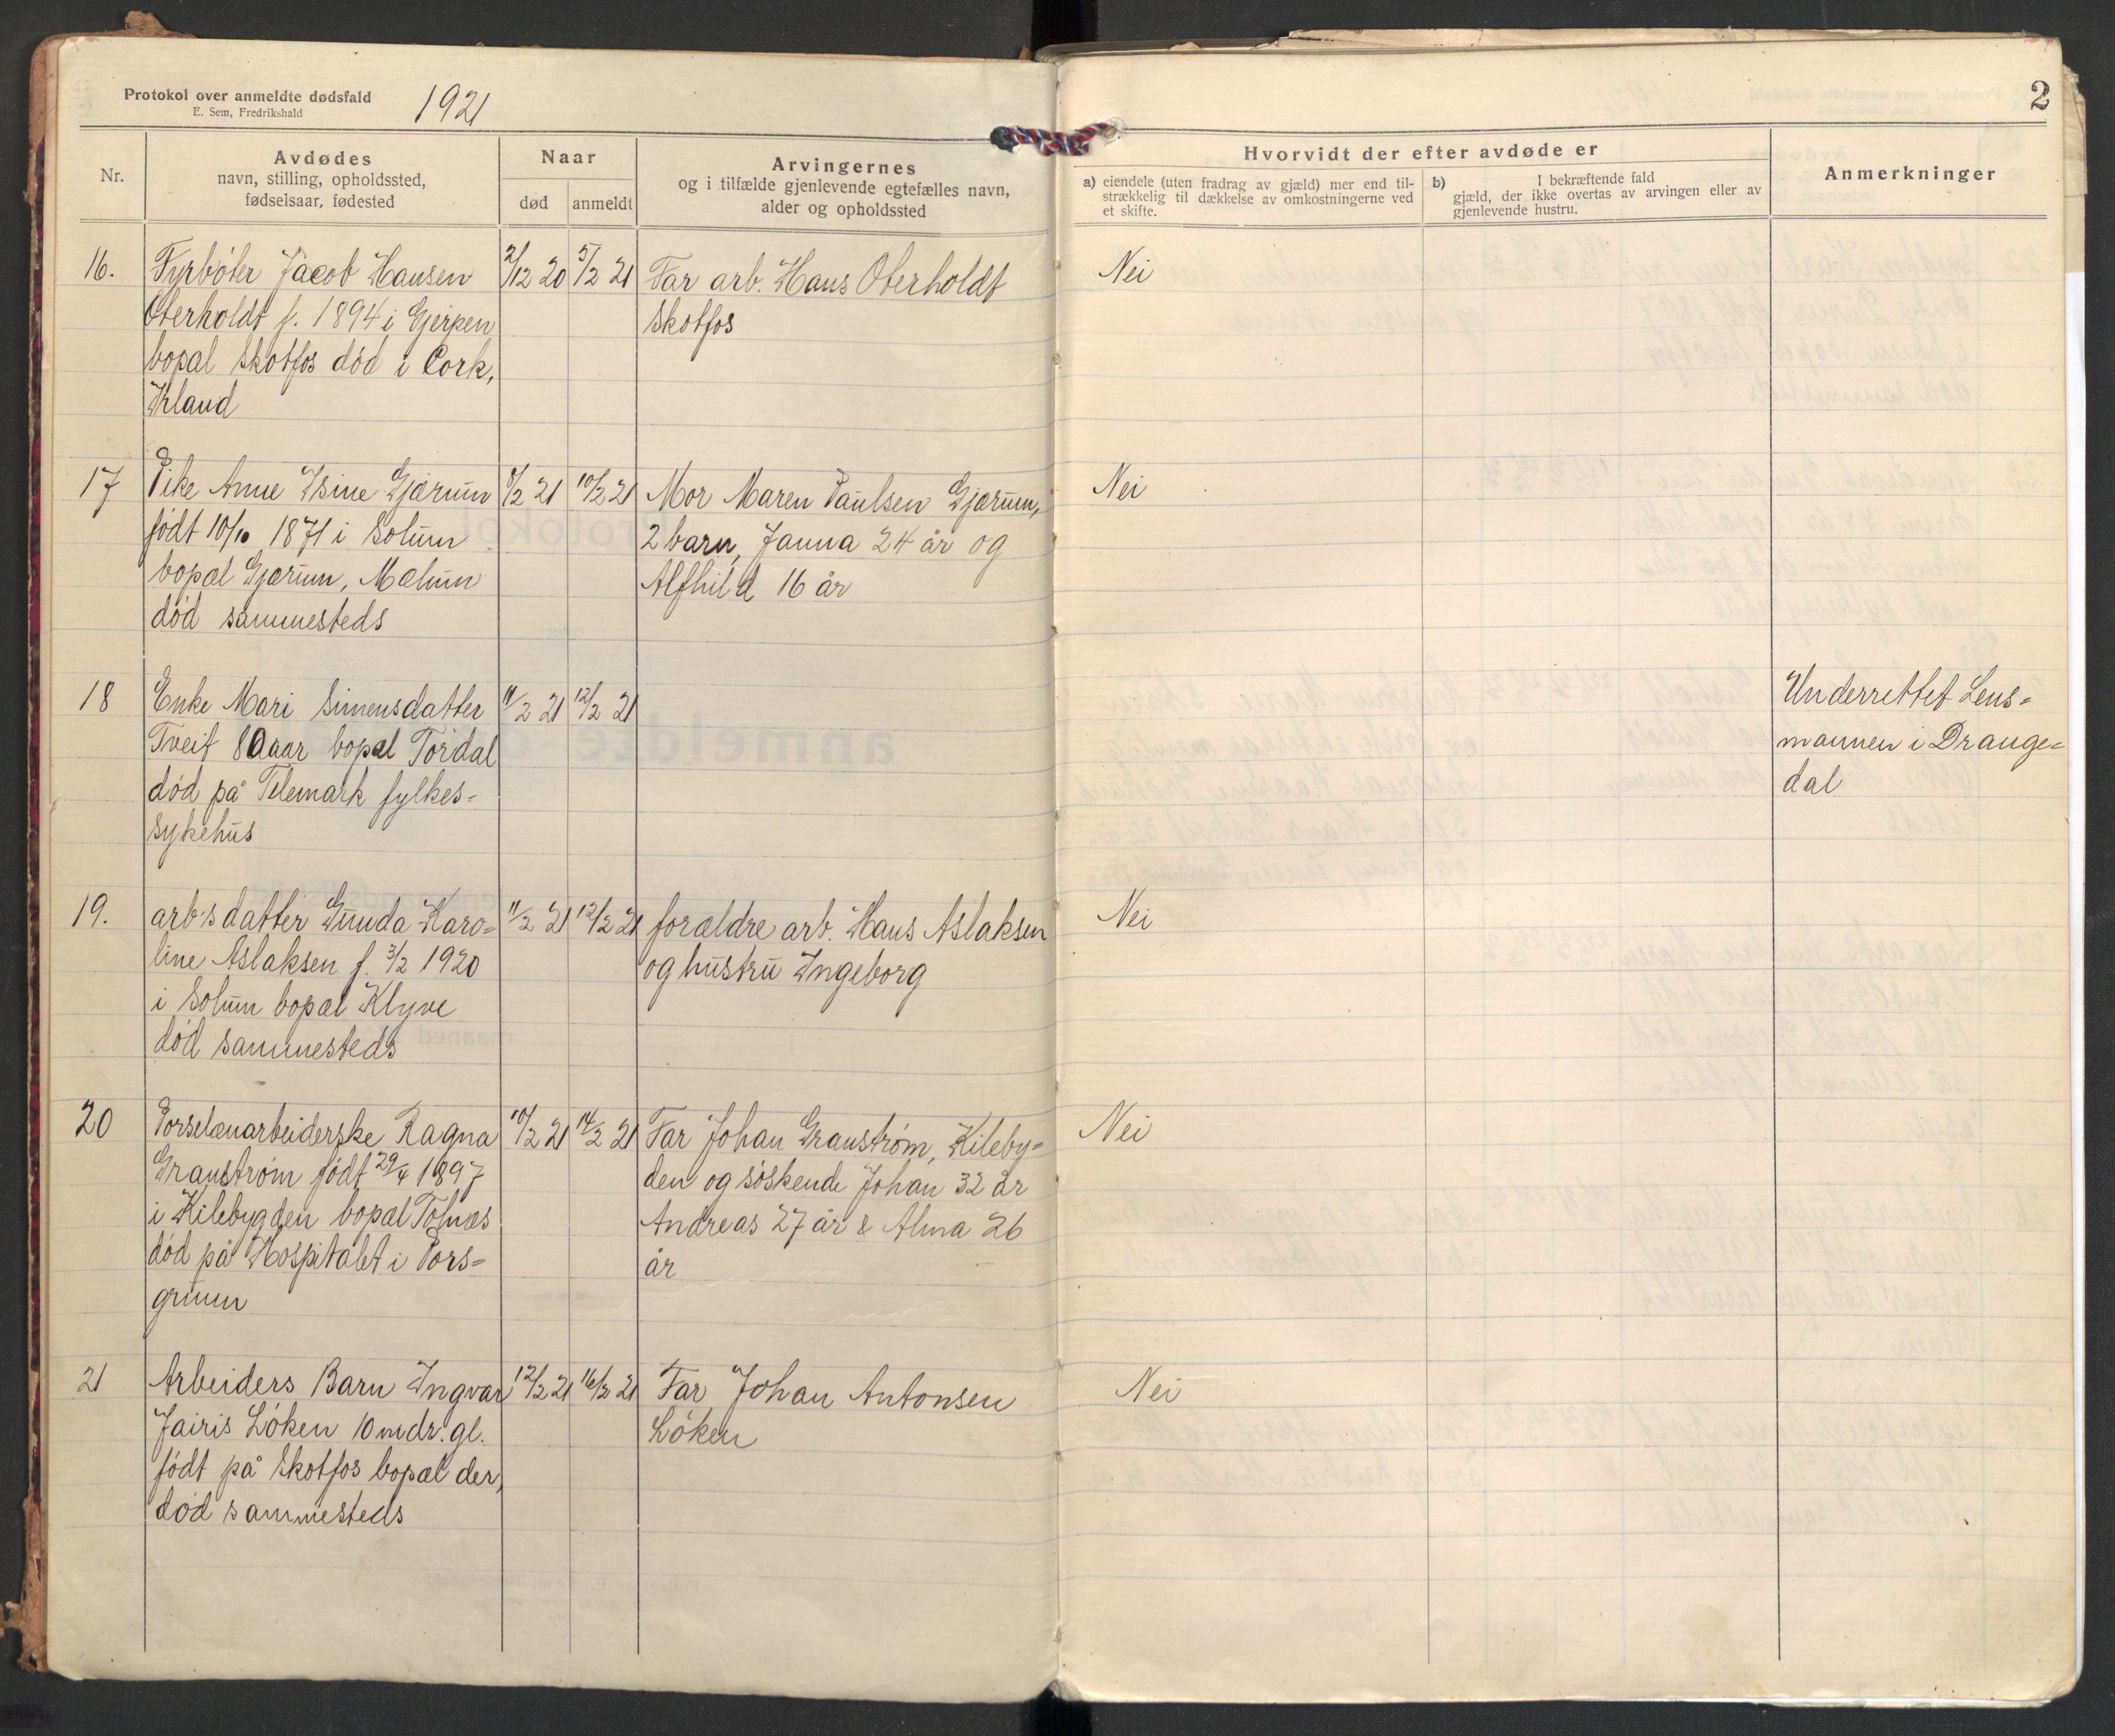 Protokol over anmeldte dødsfald
E. Sem, Fredrikshald
1921
2
Nr.
Avdødes
navn, stilling, opholdssted,
fødselsaar, fødested
Naar
død
anmeldt
Arvingernes
og i tilfælde gjenlevende egtefælles navn,
alder og opholdssted
Hvorvidt der efter avdøde er
a) eiendele (uten fradrag av gjæld) mer end til-
strækkelig til dækkelse av omkostningerne ved
et skifte.
b) I bekræftende fald
gjæld, der ikke overtas av arvingen eller av
gjenlevende hustru.
Anmerkninger
16.
Fyrbøter Jacob Hansen
Oterholdt f. 1894 i Gjerpen
bopæl Skotfos død i Cork,
Irland
2/12 20
5/2 21
Far arb. Hans Oterholdt
Skotfos
Nei
17
Pike Anne Isine Gjærum
født 10/10 1871 i Solum
bopæl Gjærum, Mælum
død sammesteds
8/2 21
10/2 21
Mor Maren Paulsen Gjærum,
2 barn, Janna 24 år og
Alfhild 16 år
Nei
18
Enke Mari Simensdatter
Tveit 80 aar bopæl Tørdal
død på Telemark fylkes-
sykehus
11/2 21
12/2 21
Underrettet Lens-
mannen i Drange-
dal
19.
arb's datter Gunda Karo-
line Aslaksen f. 3/2 1920
i Solum bopæl Klyve
død sammesteds
11/2 21
12/2 21
forældre arb. Hans Aslaksen
og hustru Ingeborg
Nei
20
Porselænarbeiderske Ragna
Granstrøm født 29/4 1897
i Kilebygden bopæl Tolnæs
død på Hospitalet i Pors-
grunn
10/2 21
14/2 21
Far Johan Granstrøm, Kileby-
den og søskende Johan 32 år
Andreas 27 år & Alma 26
år
Nei
21
Arbeiders Barn Ingvar
Jairis Løken 10 mdr. gl.
født på Skotfos bopæl der,
død sammesteds
12/2 21
16/2 21
Far Johan Antonsen
Løken
Nei